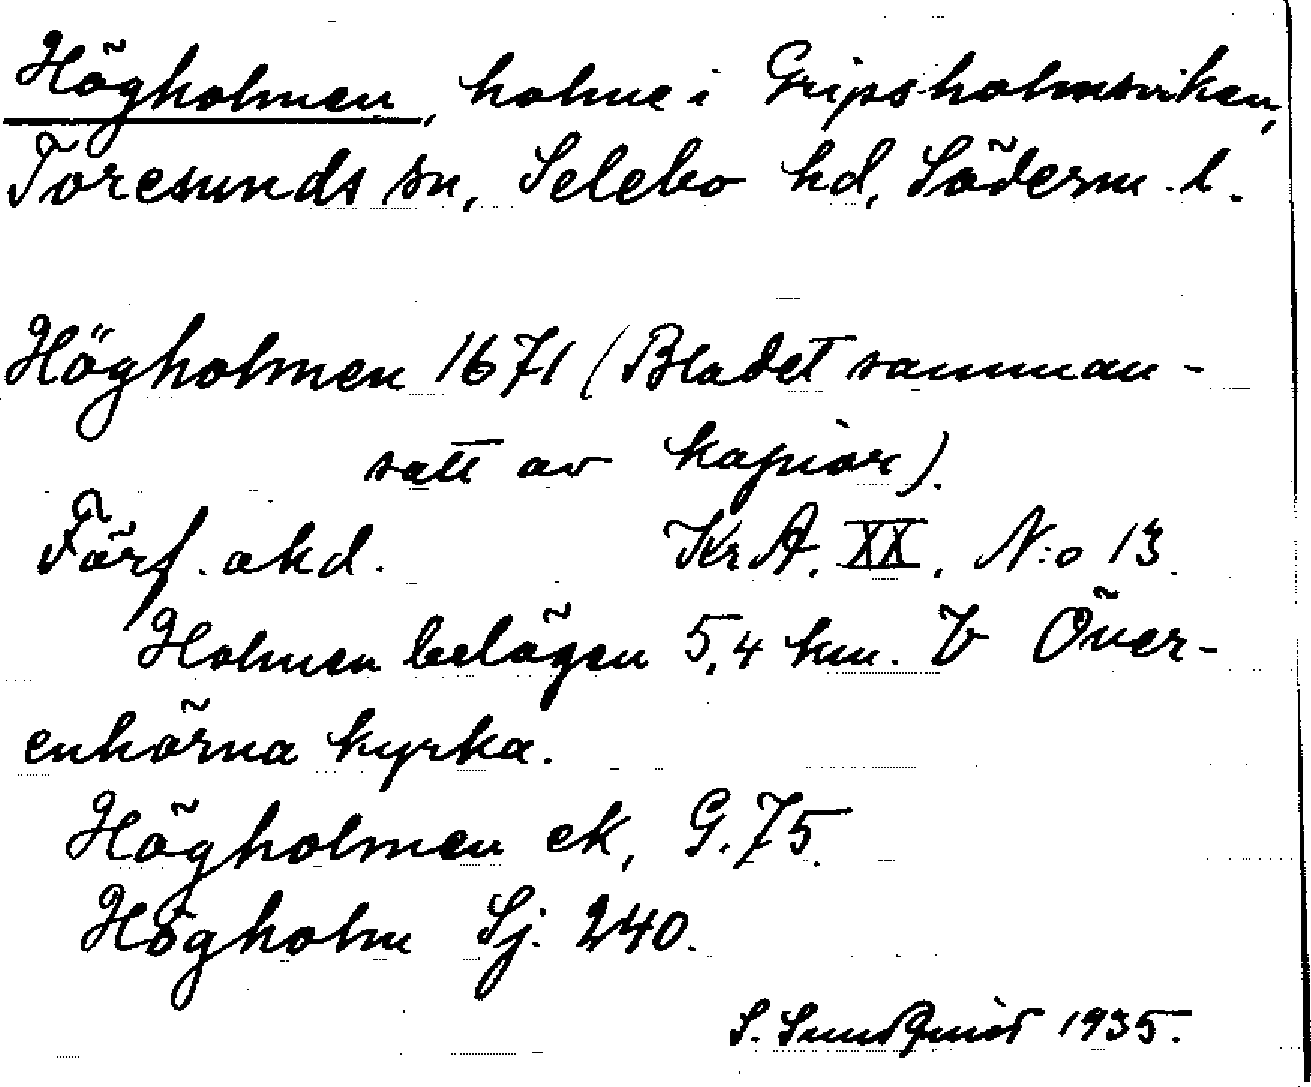 Högholmen, holme i Gripsholmsviken,
Toresunds sn, Selebo hd, Söderm. l.
Högholmen 1671 (Bladet samman-
satt av kopior).
Förf. akd. KrA. XX. N:o 13.
Holmen belägen 5,4 km. V Över-
enhörna kyrka.
Högholmen ek, G. 75.
Högholm Sj. 240.
S. Sundquist 1935.